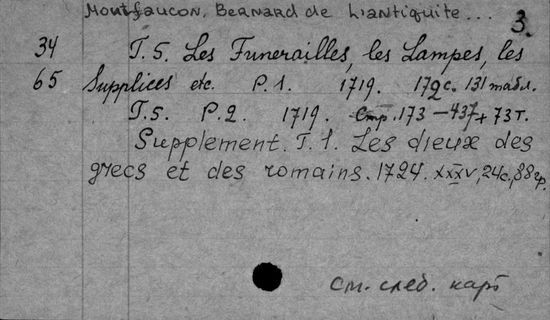 Montfaucon, Bernard de L'antiquite... 3.
34 T. 5. Les Funerailles, les Lampes, les
65 Supplices etc. P. 1. 1719. 172с. 131 табл.
T. 5. P. 2. 1719. Стр. 173-437+73т.
Supplement. T. 1. Les dieux des
grecs et des romains. 1724. XXXV, 24с.,
См. след. карт